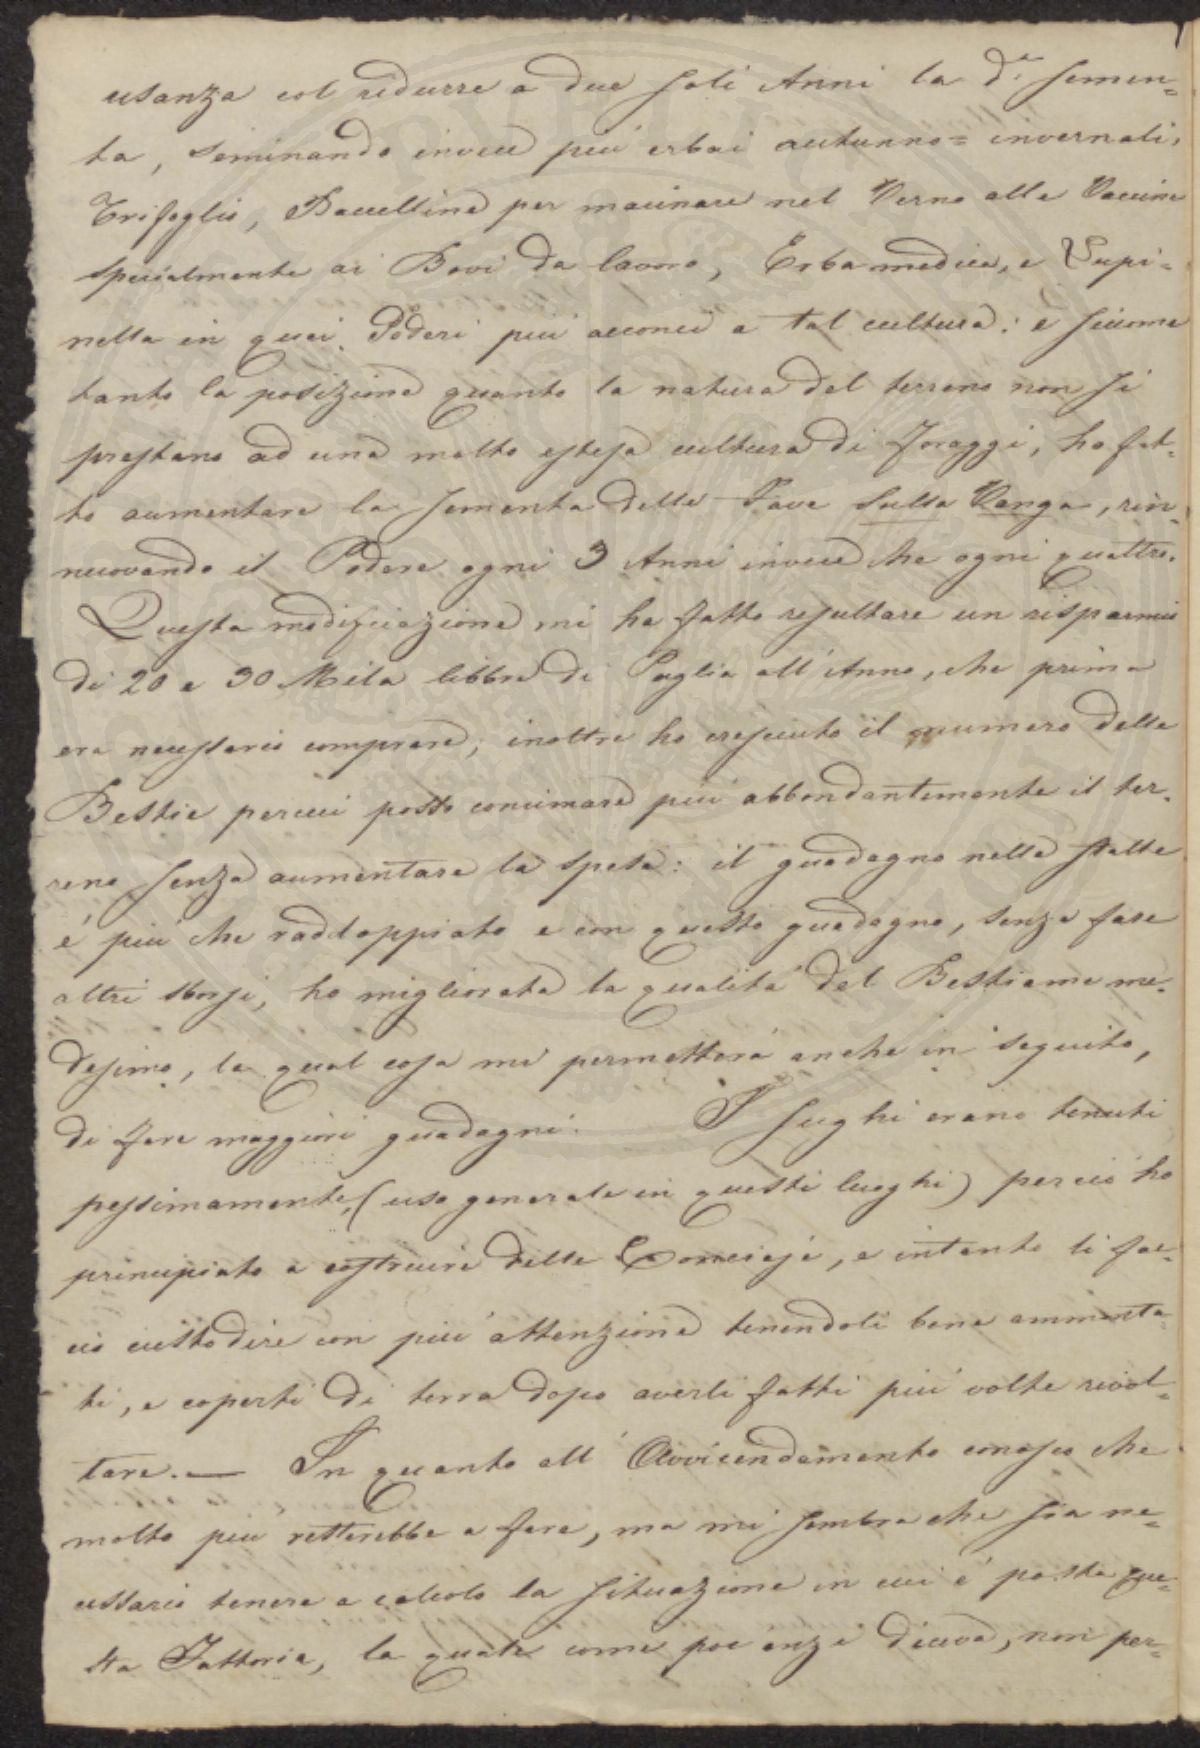 usanza col ridurre a due soli Anni la d.a semen=
ta, seminando invece più erbai autunno= invernali,
Trifoglio, Baccelline per macinare nel Verno alle Vaccine
specialmente ai Bovi da lavoro, Erba medica, e Lupi=
nella in quei Poderi più acconci a tal cultura: e siccome
tanto la posizione quanto la natura del terreno non si
prestano ad una molto estesa cultura di Foraggi, ho fat=
to aumentare la sementa delle Fave sulla Vanga, rin=
nuovando il Podere ogni 3 Anni invece che ogni quattro.
Questa modificazione mi ha fatto resultare un risparmio
di 20 a 30 Mila libbre di Paglia all'Anno, che prima
era necessario comprare; inoltre ho cresciuto il numero delle
Bestie percui posso concimare più abbondantemente il ter=
reno senza aumentare la spesa: il guadagno nelle stalle
é più che raddoppiato e con questo guadagno, senza fare
altri sborsi, ho migliorata la qualità del Bestiame me=
desimo, la qual cosa mi permetterà anche in seguito,
di fare maggiori guadagni. I sughi erano tenuti
pessimamente, (uso generale in questi luoghi) perciò ho
principiato a costruire delle Concimaje, e intanto li fac=
cio custodire con più attenzione tenendoli bene ammonta=
ti, e coperti di terra dopo averli fatti più volte rivol=
tare. — In quanto all'Avvicendamento conosco che
molto più resterebbe a fare, ma mi sembra che sia ne=
cessario tenere a calcolo la situazione in cui é posta que=
sta Fattoria, la quale come poc'anzi diceva, non per=